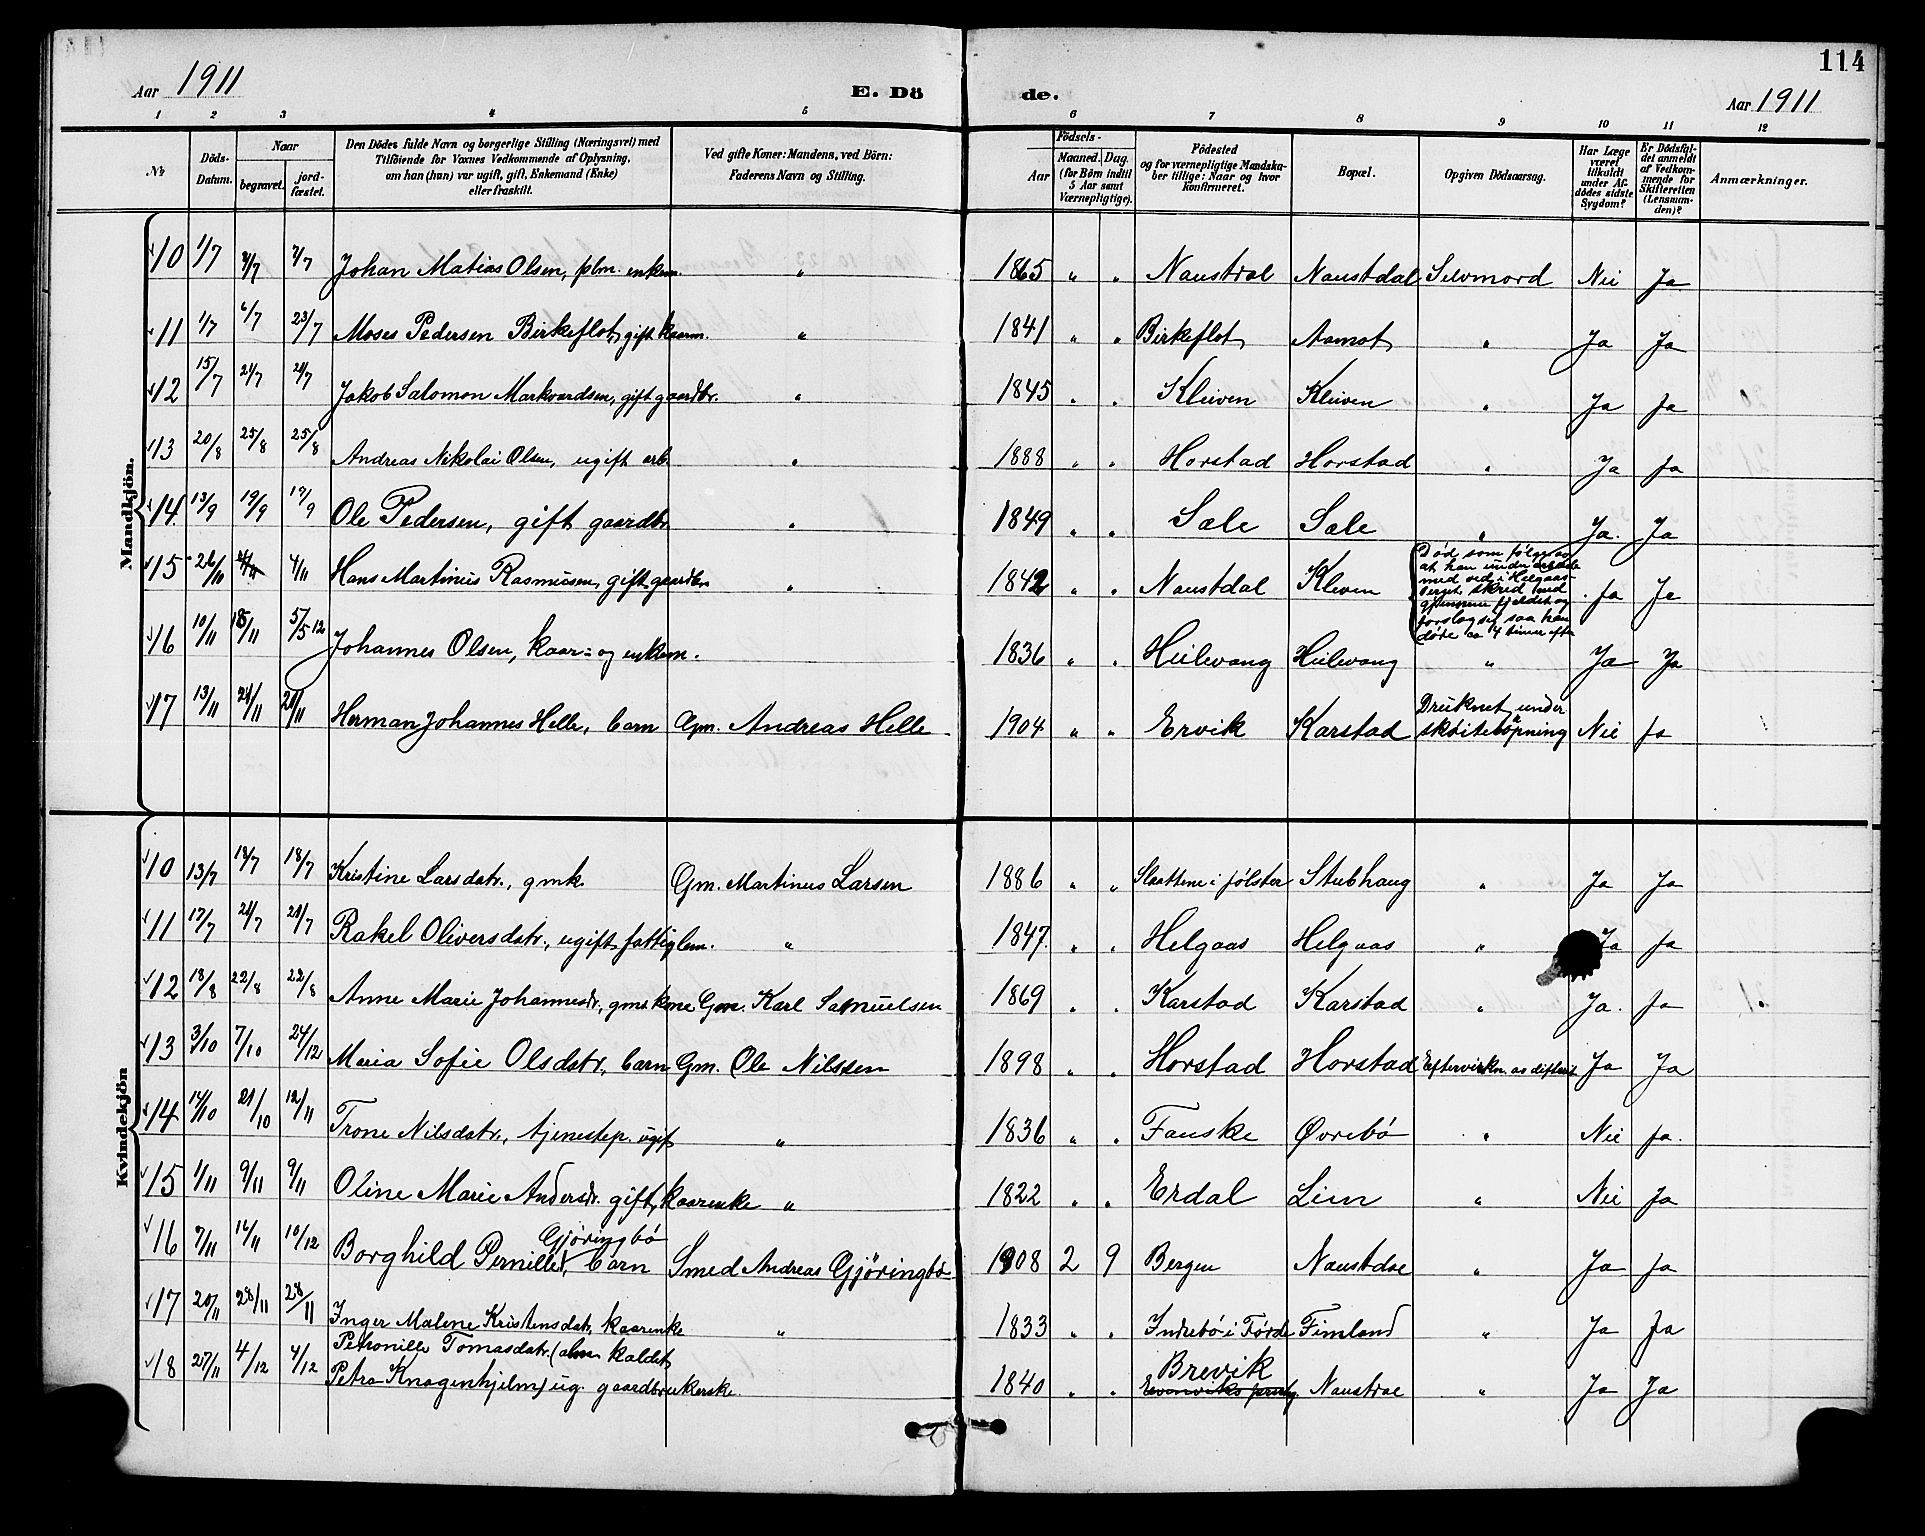 114
Aar 1911 E. Dö de. Aar 1911
1 2 3 4 5 6 7 8 9 10 11 12
Nr. Döds-Datum. Naar begravet. jord-fæstet. Den Dödes fulde Navn og borgerlige Stilling (Næringsvei) med Tilföiende for Voxnes Vedkommende af Oplysning, om han (hun) var ugift, gift, Enkemand (Enke) eller fraskilt. Ved gifte Koner: Mandens, ved Börn: Faderens Navn og Stilling. Födsels- Aar Maaned. Dag. (for Börn indtil 5 Aar samt Værnepligtige). Födested og for værnepligtige Mandskaber tillige: Naar og hvor konfirmeret. Bopæl. Opgiven Dödsaarsag. Har Læge været tilkaldt under Afdödes sidste Sygdom? Er Dödsfaldet anmeldt af Vedkommende for Skifteretten (Lensmanden)? Anmærkninger.
Mandkjön.
10 1/7 7/7 7/7 Johan Matias Olsen, plm. enkem. " 1865 " " Naustdal Naustdal Selvmord Nei Ja
11 1/7 6/7 23/7 Moses Pedersen Birkeflot, gift kaarm. " 1841 " " Birkeflot Aamot " Ja Ja
12 15/7 21/7 21/7 Jakob Salomon Markvardsen, gift gaardbr. " 1845 " " Kleiven Kleiven " Ja Ja
13 20/8 25/8 25/8 Andreas Nikolai Olsen, ugift arb. " 1888 " " Horstad Horstad " Ja Ja
14 13/9 19/9 19/9 Ole Pedersen, gift gaardbr. " 1849 " " Sæle Sæle " Ja. Ja
15 26/10 4/11 4/11 Hans Martinus Rasmusen, gift gaardbr. " 1842 " " Naustdal Kleven Død som følge av at han under arbeide med ved i Helgaasberget skred ned gjennem fjeldet og forslog sig saa han døde ca 4 timer efter Ja Ja
16 10/11 18/11 5/5 12 Johannes Olsen, kaar- og enkem. 1836 " " Heilevang Heilevang " Ja Ja
17 13/11 21/11 21/11 Herman Johannes Helle, barn Gm. Andreas Helle 1904 " " Ervik Karstad Druknet under skøiteløpning Nei Ja
Kvindekjön
10 13/7 18/7 18/7 Kristine Larsdatr., gmk. Gm. Martinus Larsen 1886 " " Slaattene i Jølster Stubhaug " Ja Ja
11 17/7 21/7 21/7 Rakel Oliversdatr., ugift fattiglem. " 1847. " " Helgaas Helgaas " Ja Ja
12 18/8 22/8 22/8 Anne Marie Johannesdr., gms kone Gm. Karl Samuelsen 1869 " " Karstad Karstad " Ja. Ja
13 3/10 7/10 24/12 Maria Sofie Olsdatr., barn Gm. Ole Nilssen 1898 " " Horstad Horstad Eftervirkn. av difterit Ja Ja
14 14/10 21/10 12/11 Trone Nilsdatr., tjenestep. ugift " 1836 " " Fauske Øvrebø " Nei Ja.
15 1/11 9/11 9/11 Oline Marie Andersdr. gift, kaarenke " 1822 " " Erdal Lein " Nei Ja
16 7/11 16/11 10/12 Borghild Pernille Gjøringbø, barn Smed Andreas Gjøringbø 1908 2 9 Bergen Naustdal " Ja Ja
17 20/11 28/11 28/11 Inger Malene Kristensdatr., kaarenke " 1833 " " Indrebø i Førde Fimland " Ja Ja
18 27/11 4/12 4/12 Petronille Tomasdatr. (alm. kaldet
Petra Knagenhjelm) ug. gaardbrukerske. 1840 " " Brevik Naustdal " Ja Ja